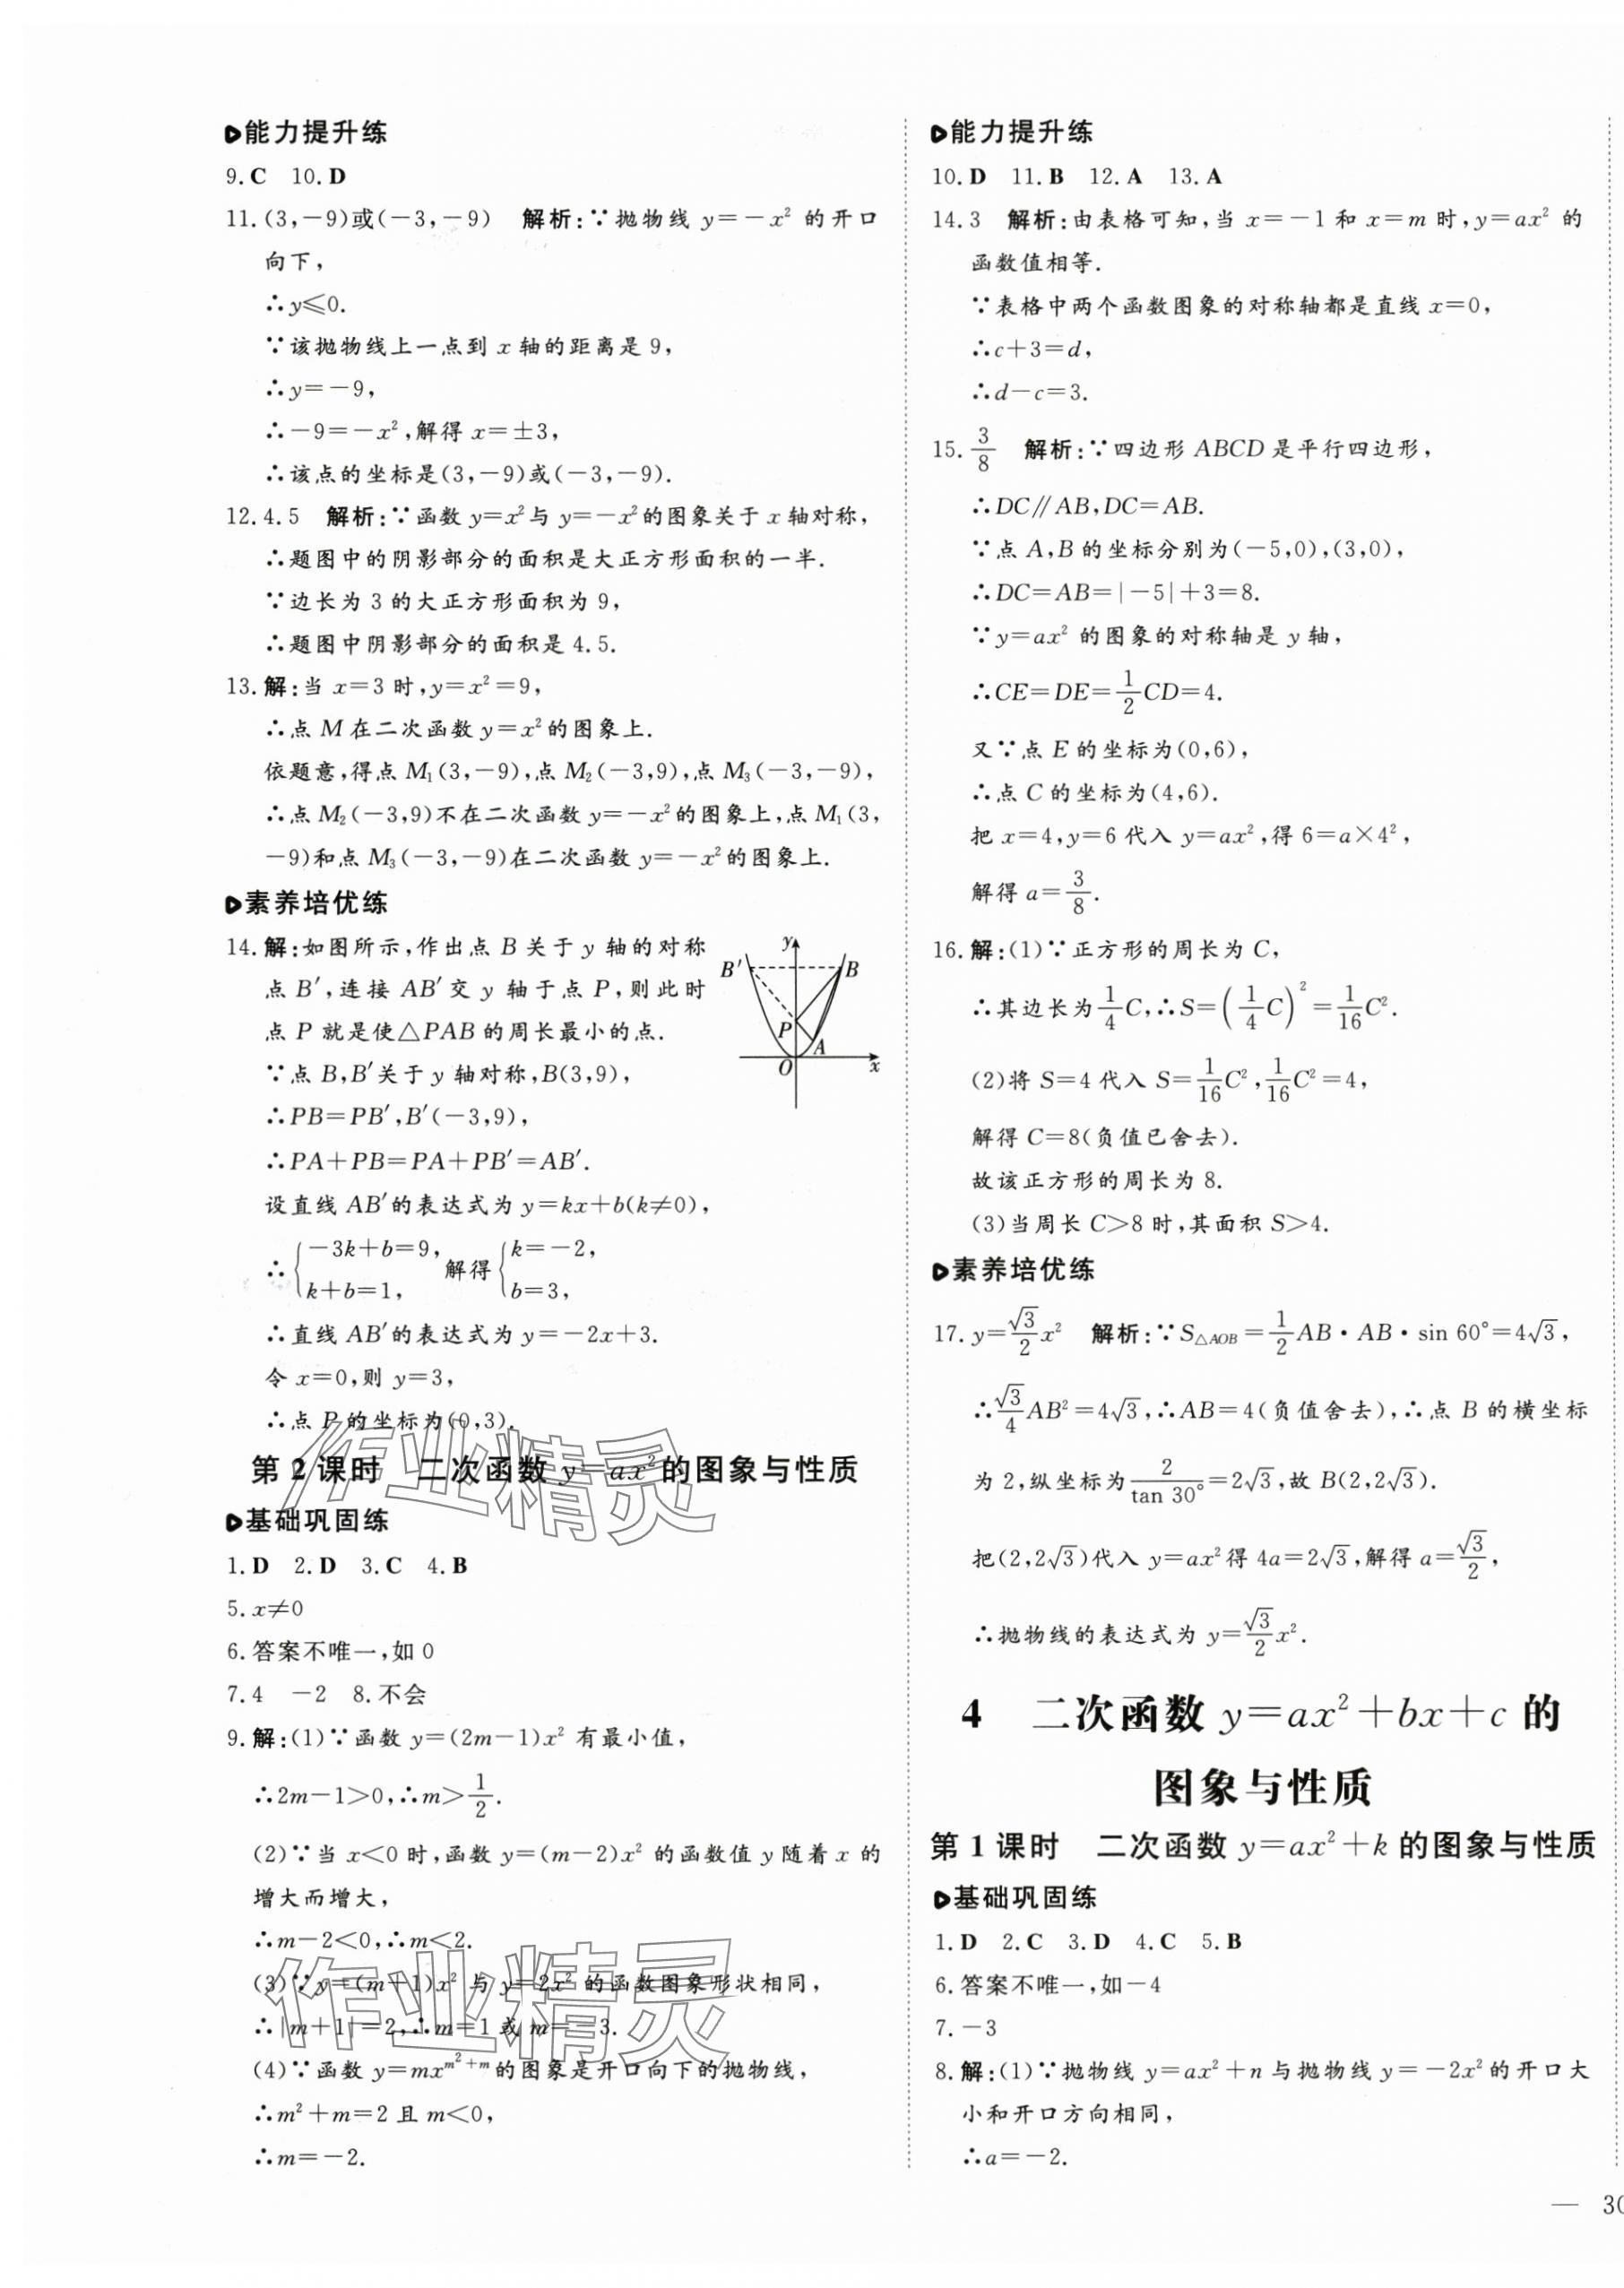 能力提升练
9.C 10.D
11.(3,-9)或(-3,-9) 解析:∵抛物线 y=-x² 的开口
向下,
∴y≤0.
∵该抛物线上一点到 x 轴的距离是 9,
∴y=-9,
∴-9=-x²,解得 x=±3,
∴该点的坐标是(3,-9)或(-3,-9).
12.4.5 解析:∵函数 y=x²与 y=-x²的图象关于 x 轴对称,
∴题图中的阴影部分的面积是大正方形面积的一半.
∵边长为 3 的大正方形面积为 9,
∴题图中阴影部分的面积是 4.5.
13.解:当 x=3 时,y=x²=9,
∴点 M 在二次函数 y=x²的图象上.
依题意,得点 M₁(3,-9),点 M₂(-3,9),点 M₃(-3,-9),
∴点 M₂(-3,9)不在二次函数 y=-x²的图象上,点 M₁(3,
-9)和点 M₃(-3,-9)在二次函数 y=-x²的图象上.
素养培优练
14.解:如图所示,作出点 B 关于 y 轴的对称
点 B′,连接 AB′交 y 轴于点 P,则此时
点 P 就是使△PAB 的周长最小的点.
∵点 B,B′关于 y 轴对称,B(3,9),
∴PB=PB′,B′(-3,9),
∴PA+PB=PA+PB′=AB′.
设直线 AB′的表达式为 y=kx+b(k≠0),
∴{-3k+b=9, k+b=1, 解得{k=-2, b=3,
∴直线 AB′的表达式为 y=-2x+3.
令 x=0,则 y=3,
∴点 P 的坐标为(0,3).
y
B′
B
P
A
O
x
第 2 课时 二次函数 y=ax²的图象与性质
基础巩固练
1.D 2.D 3.C 4.B
5.x≠0
6.答案不唯一,如 0
7.4 -2 8.不会
9.解:(1)∵函数 y=(2m-1)x² 有最小值,
∴2m-1>0,∴m>1/2.
(2)∵当 x<0 时,函数 y=(m-2)x² 的函数值 y 随着 x 的
增大而增大,
∴m-2<0,∴m<2.
(3)∵y=(m+1)x² 与 y=2x² 的函数图象形状相同,
∴|m+1|=2,∴m=1 或 m=-3.
(4)∵函数 y=mx^(m²+m)的图象是开口向下的抛物线,
∴m²+m=2 且 m<0,
∴m=-2.
作业精灵
作业精灵
能力提升练
10.D 11.B 12.A 13.A
14.3 解析:由表格可知,当 x=-1 和 x=m 时,y=ax² 的
函数值相等.
∵表格中两个函数图象的对称轴都是直线 x=0,
∴c+3=d,
∴d-c=3.
15.3/8 解析:∵四边形 ABCD 是平行四边形,
∴DC∥AB,DC=AB.
∵点 A,B 的坐标分别为(-5,0),(3,0),
∴DC=AB=|-5|+3=8.
∵y=ax² 的图象的对称轴是 y 轴,
∴CE=DE=1/2CD=4.
又∵点 E 的坐标为(0,6),
∴点 C 的坐标为(4,6).
把 x=4,y=6 代入 y=ax²,得 6=a×4²,
解得 a=3/8.
16.解:(1)∵正方形的周长为 C,
∴其边长为1/4C,∴S=(1/4C)²=1/16C².
(2)将 S=4 代入 S=1/16C²,1/16C²=4,
解得 C=8(负值已舍去).
故该正方形的周长为 8.
(3)当周长 C>8 时,其面积 S>4.
素养培优练
17.y=√3/2x² 解析:∵S△AOB=1/2AB·AB·sin 60°=4√3,
∴√3/4AB²=4√3,∴AB=4(负值舍去),∴点 B 的横坐标
为 2,纵坐标为2/tan 30°=2√3,故 B(2,2√3).
把(2,2√3)代入 y=ax²得 4a=2√3,解得 a=√3/2,
∴抛物线的表达式为 y=√3/2x².
4 二次函数 y=ax²+bx+c 的
图象与性质
第 1 课时 二次函数 y=ax²+k 的图象与性质
基础巩固练
1.D 2.C 3.D 4.C 5.B
6.答案不唯一,如-4
7.-3
8.解:(1)∵抛物线 y=ax²+n 与抛物线 y=-2x²的开口大
小和开口方向相同,
∴a=-2.
— 30